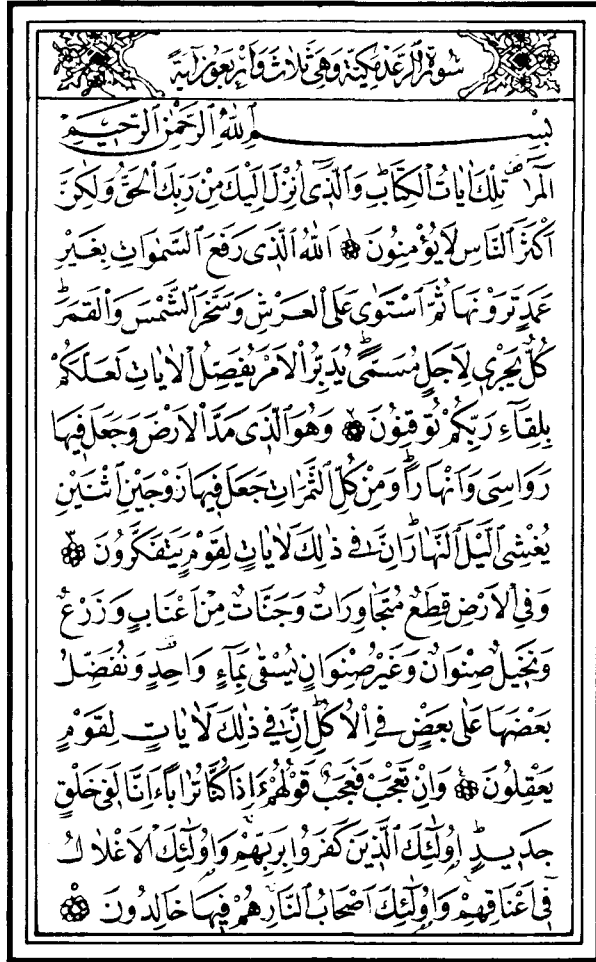 سُورَةُ الرَّعْدِ مَكِّيَّةٌ وَهِيَ ثَلَاثٌ وَأَرْبَعُونَ آيَةً
بِسْمِ اللّٰهِ الرَّحْمٰنِ الرَّحِيمِ
الٓمٓرٰ تِلْكَ اٰيَاتُ الْكِتَابِ وَالَّذٖٓي اُنْزِلَ اِلَيْكَ مِنْ رَبِّكَ الْحَقُّ وَلٰكِنَّ
اَكْثَرَ النَّاسِ لَا يُؤْمِنُونَ ۝ اَللّٰهُ الَّذٖي رَفَعَ السَّمٰوَاتِ بِغَيْرِ
عَمَدٍ تَرَوْنَهَا ثُمَّ اسْتَوٰى عَلَى الْعَرْشِ وَسَخَّرَ الشَّمْسَ وَالْقَمَرَ
كُلٌّ يَجْرٖي لِاَجَلٍ مُسَمًّى يُدَبِّرُ الْاَمْرَ يُفَصِّلُ الْاٰيَاتِ لَعَلَّكُمْ
بِلِقَٓاءِ رَبِّكُمْ تُوقِنُونَ ۝ وَهُوَ الَّذٖي مَدَّ الْاَرْضَ وَجَعَلَ فٖيهَا
رَوَاسِيَ وَاَنْهَارًا وَمِنْ كُلِّ الثَّمَرَاتِ جَعَلَ فٖيهَا زَوْجَيْنِ اثْنَيْنِ
يُغْشِي الَّيْلَ النَّهَارَ اِنَّ فٖي ذٰلِكَ لَاٰيَاتٍ لِقَوْمٍ يَتَفَكَّرُونَ ۝
وَفِي الْاَرْضِ قِطَعٌ مُتَجَاوِرَاتٌ وَجَنَّاتٌ مِنْ اَعْنَابٍ وَزَرْعٌ
وَنَخٖيلٌ صِنْوَانٌ وَغَيْرُ صِنْوَانٍ يُسْقٰى بِمَٓاءٍ وَاحِدٍ وَنُفَضِّلُ
بَعْضَهَا عَلٰى بَعْضٍ فِي الْاُكُلِ اِنَّ فٖي ذٰلِكَ لَاٰيَاتٍ لِقَوْمٍ
يَعْقِلُونَ ۝ وَاِنْ تَعْجَبْ فَعَجَبٌ قَوْلُهُمْ ءَاِذَا كُنَّا تُرَابًا ءَاِنَّا لَفٖي خَلْقٍ
جَدٖيدٍ اُو۬لٰٓئِكَ الَّذٖينَ كَفَرُوا بِرَبِّهِمْ وَاُو۬لٰٓئِكَ الْاَغْلَالُ
فٖٓي اَعْنَاقِهِمْ وَاُو۬لٰٓئِكَ اَصْحَابُ النَّارِ هُمْ فٖيهَا خَالِدُونَ ۝